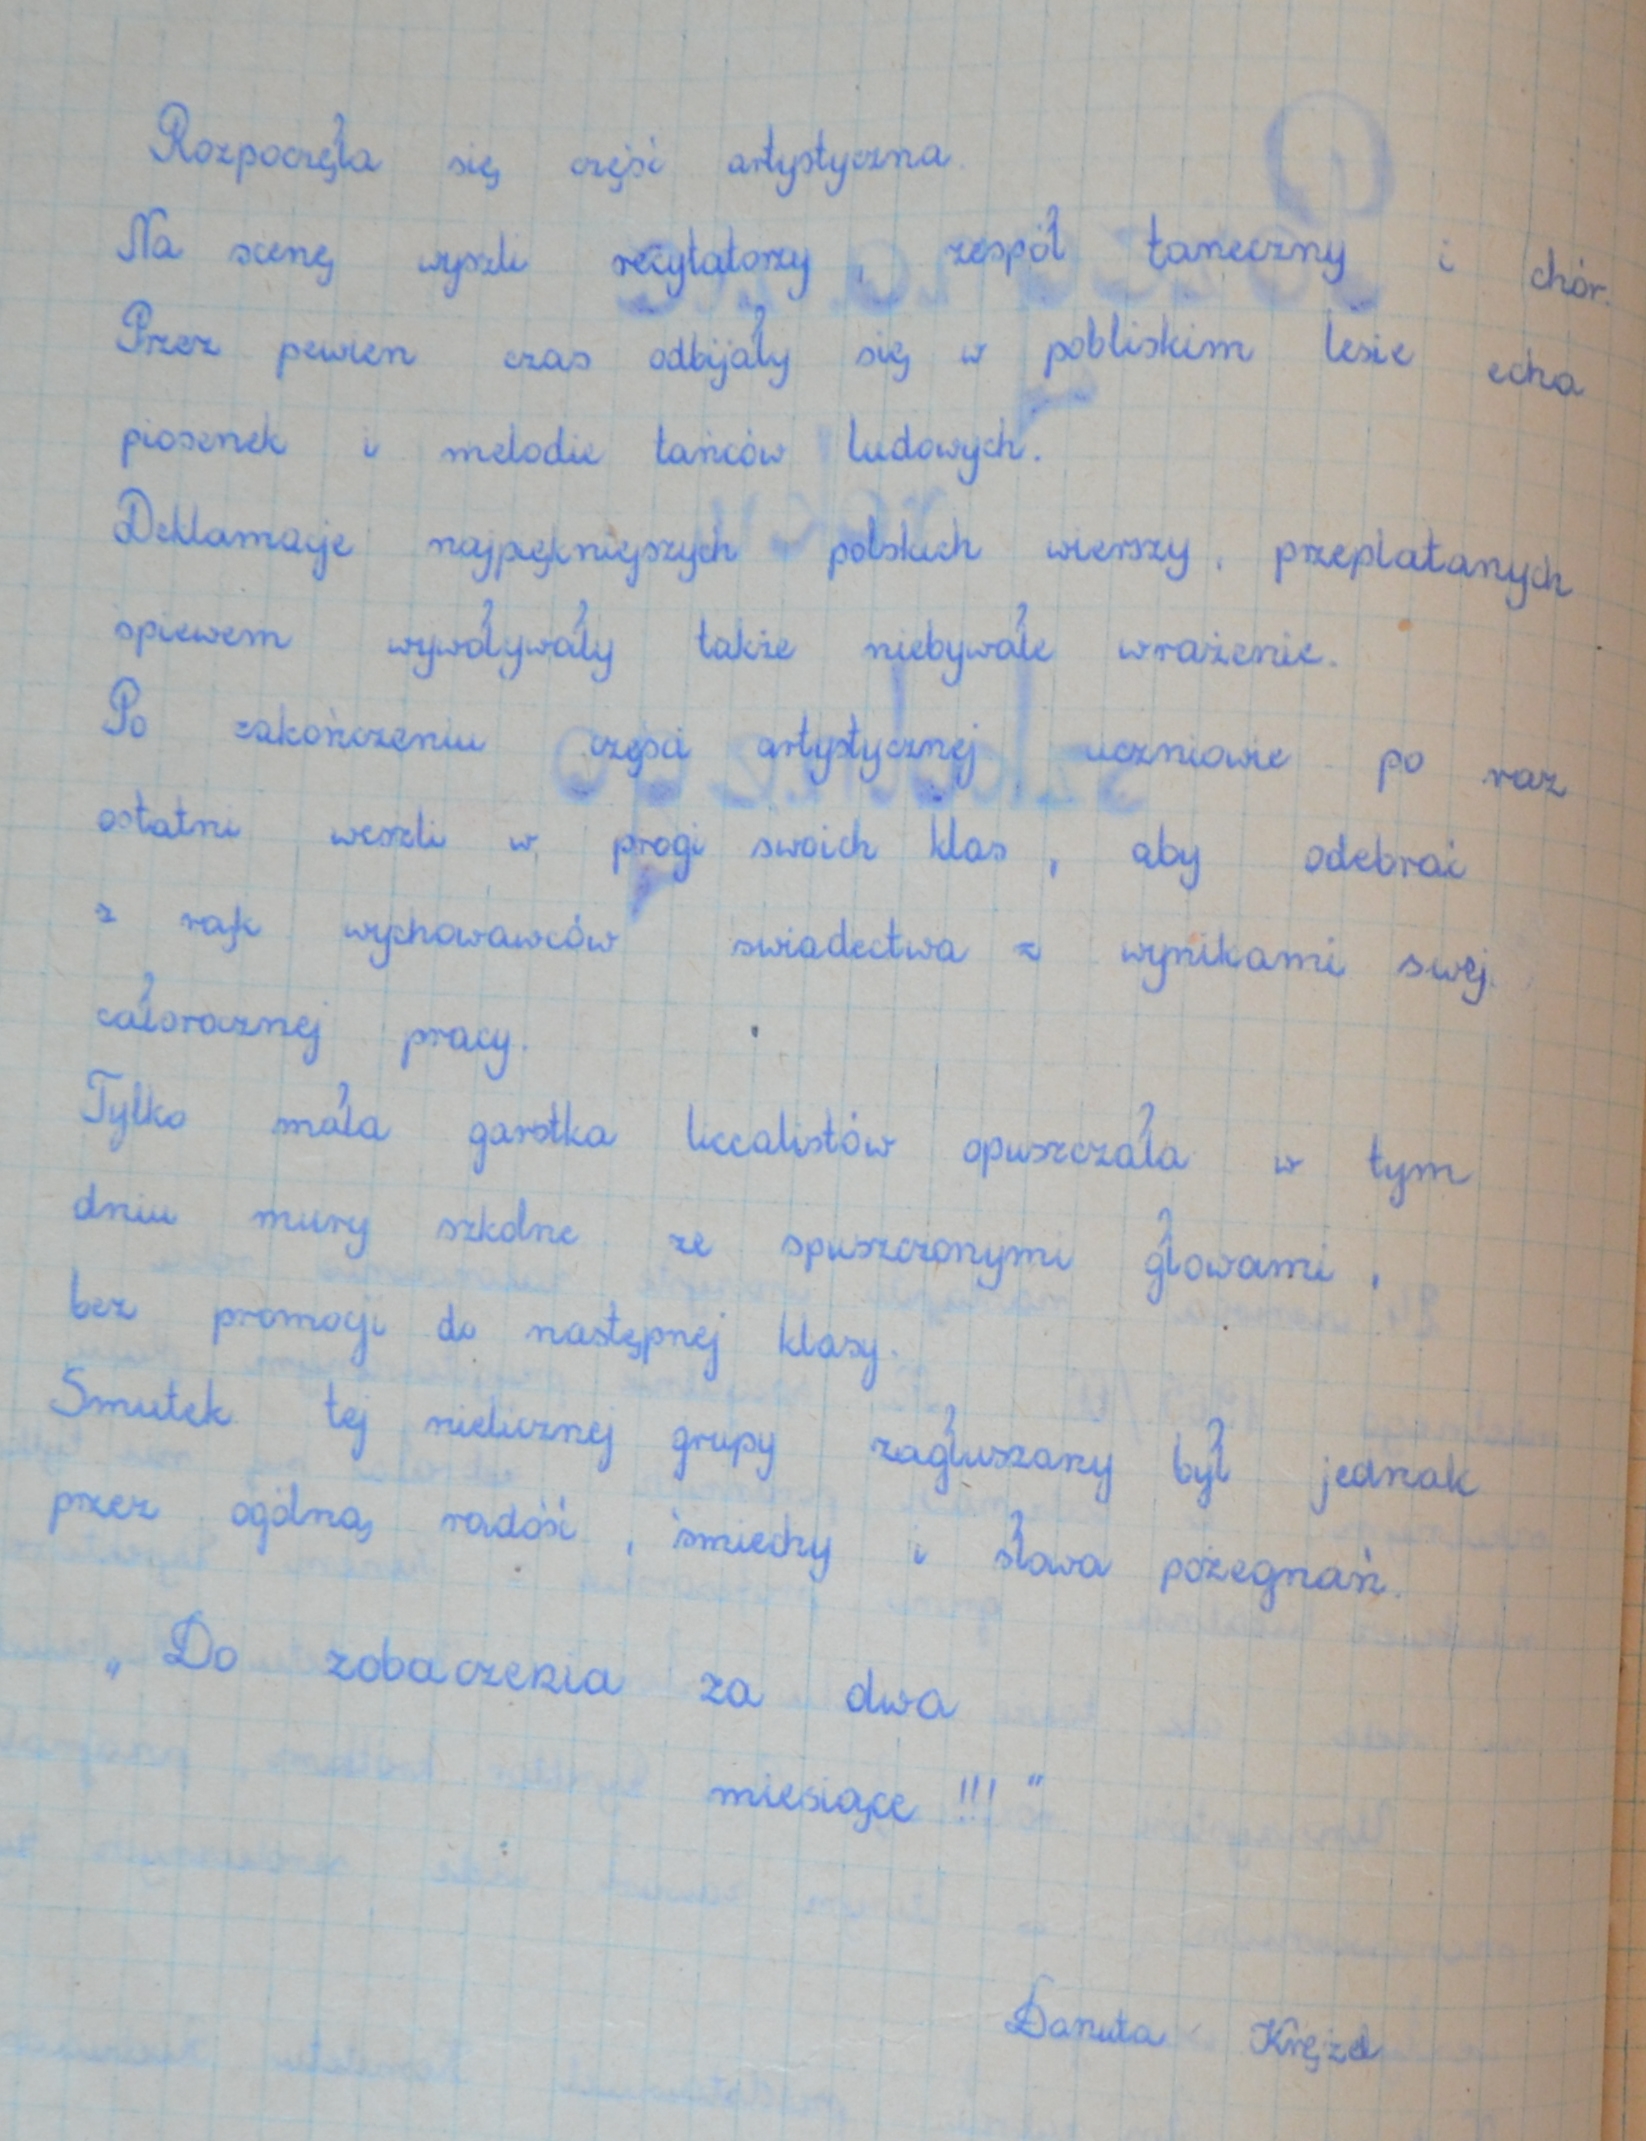 Rozpoczęła się część artystyczna.
Na scenę wyszli recytatorzy, zespół taneczny i chór.
Przez pewien czas odbijały się w pobliskim lesie echa
piosenek i melodie tańców ludowych.
Deklamacje najpiękniejszych polskich wierszy, przeplatanych
spiewem wywoływały także niebywałe wrażenie.
Po zakończeniu części artystycznej uczniowie po raz
ostatni weszli w progi swoich klas, aby odebrać
z rąk wychowawców swiadectwa z wynikami swej
całorocznej pracy.
Tylko mała garstka licealistów opuszczała w tym
dniu mury szkolne ze spuszczonymi głowami,
bez promocji do następnej klasy.
Smutek tej nielicznej grupy zagłuszany był jednak
przez ogólną radość, śmiechy i słowa pożegnań.
„Do zobaczenia za dwa
miesiące!!!"
Danuta